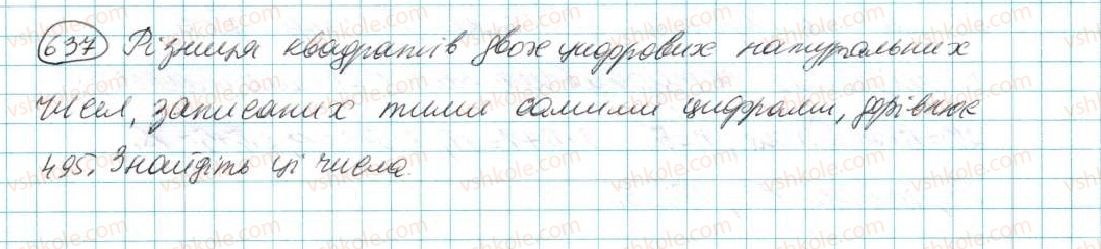 637 Різниця квадратів двох цифрових натуральних
чисел, записаних тими самими цифрами, дорівнює
495. Знайдіть ці числа.